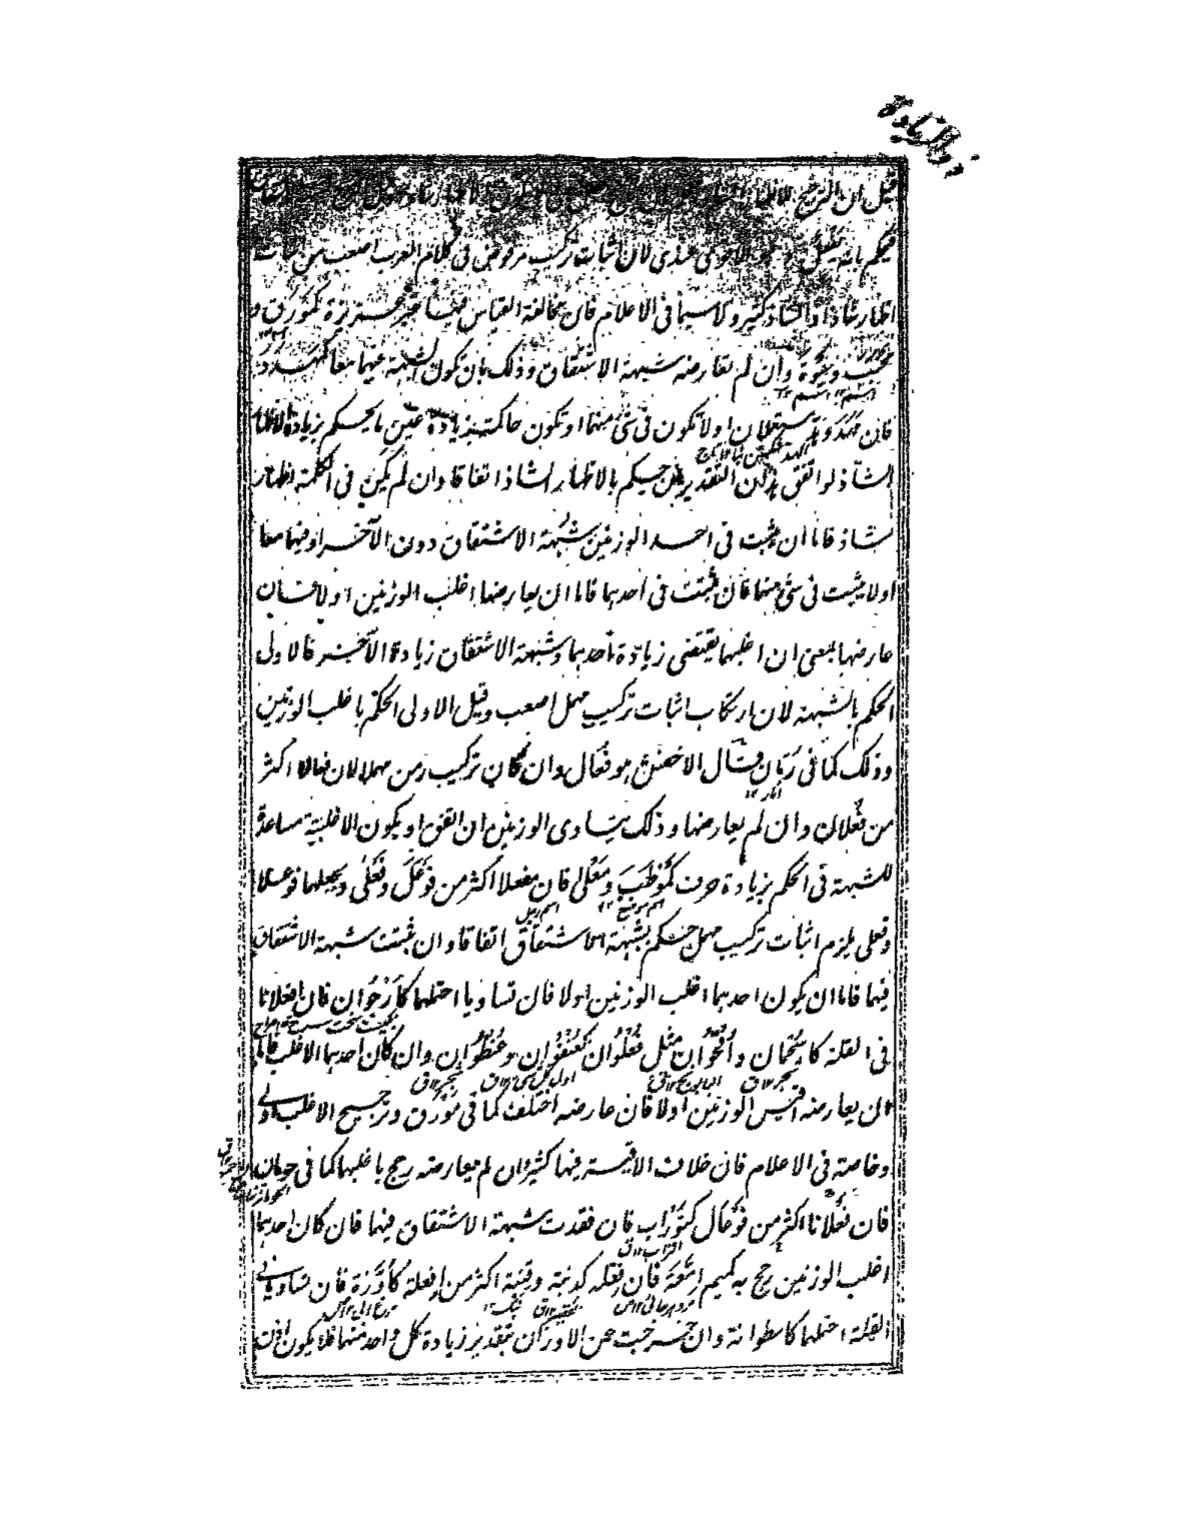 ذو الزيادة
قيل ان الترجيح للاظهار
فيحكم بانه عندى لان اثبات تركيب مرفوض فى كلام العرب اصعب من اثبات
اظهار شاذ اذ الشاذ كثير ولا سيما فى الاعلام فان مخالفة القياس فيها غير عزيزة كمورق و
محبب وحيوة وان لم تعارضه شبهة الاشتقاق وذلك بان تكون الشبهة فيهما معا كمهدد
فان مهدو مستعملان او لا تكون فى شئ منهما او تكون حاكمة بزيادة عين ما يحكم بزيادة الاظهار
الشاذ لو اتفق ذلك التقدير فحينئذ يحكم بالاظهار الشاذ اتفاقا وان لم يكن فى الكلمة اظهار
شاذ فاما ان يثبت فى احد الوزنين شبهة الاشتقاق دون الآخر او فيهما معا
او لا يثبت فى شئ منهما فان ثبتت فى احدهما فاما ان يعارضها اغلب الوزنين او لا فان
عارضها بمعنى ان اغلبهما يقتضى زيادة احدهما وشبهة الاشتقاق زيادة الآخر فالاولى
الحكم بالشبهة لان ارتكاب اثبات تركيب مهمل اصعب وقيل الاولى الحكم باغلب الوزنين
وذلك كما فى رمان قال الاخفش هو فعال وان كان تركيب رمن مهملا لان فعالا اكثر
من فعلان وان لم يعارضها وذلك بتساوى الوزنين ان اتفق او بكون الاغلبية مساعدة
للشبهة فى الحكم بزيادة حرف كموظب ومعلى فان مفعلا اكثر من فوعل وفعلى وبجعلهما فوعلا
وفعلى يلزم اثبات تركيب مهمل حكم بشبهة الاشتقاق اتفاقا وان ثبتت شبهة الاشتقاق
فيهما فاما ان يكون احدهما اغلب الوزنين او لا فان تساويا احتملهما كأرجوان فان افعلانا
فى القلة كاسحمان وأقحوان مثل فعلوان كعنفوان وعنظوان وان كان احدهما الاغلب فاما
ان يعارضه اقيس الوزنين او لا فان عارضه اختلف كما فى مورق وترجيح الاغلب اولى
وخاصة فى الاعلام فان خلاف الاقيسة فيها كثير وان لم يعارضه رجح باغلبهما كما فى حومان
فان فعلانا اكثر من فوعال كتوراب فان فقدت شبهة الاشتقاق فيهما فان كان احدهما
اغلب الوزنين رجح به كميم امعة فان فعلة كدنبة وقنبة اكثر من افعلة كأوزة فان تساويا فى
القلة احتملهما كاسطوانة وان خرجت عن الاوزان بتقدير زيادة كل واحد منهما فلا يكون اذن